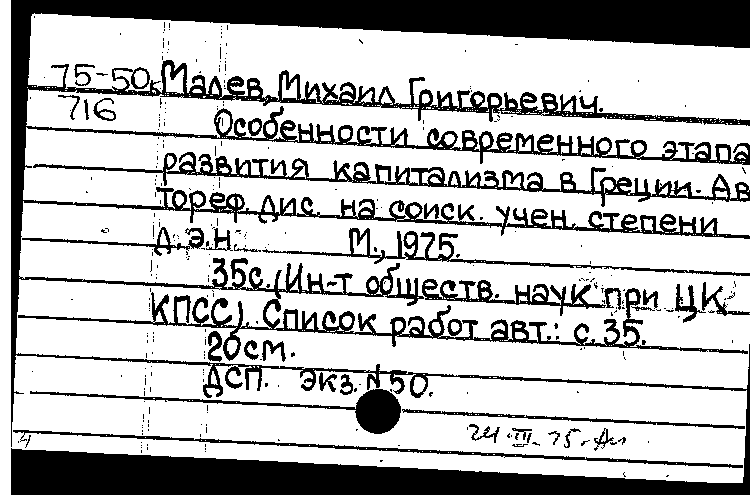 75-50 Малев, Михаил Григорьевич.
716 Особенности современного этапа
развития капитализма в Греции. Ав
тореф. дис. на соиск. учен. степени
д.э.н. М., 1975.
35с. (Ин-т обществ. наук при ЦК
КПСС). Список работ авт.: с. 35.
20см.
ДСП. экз. №50.
24.III.75.